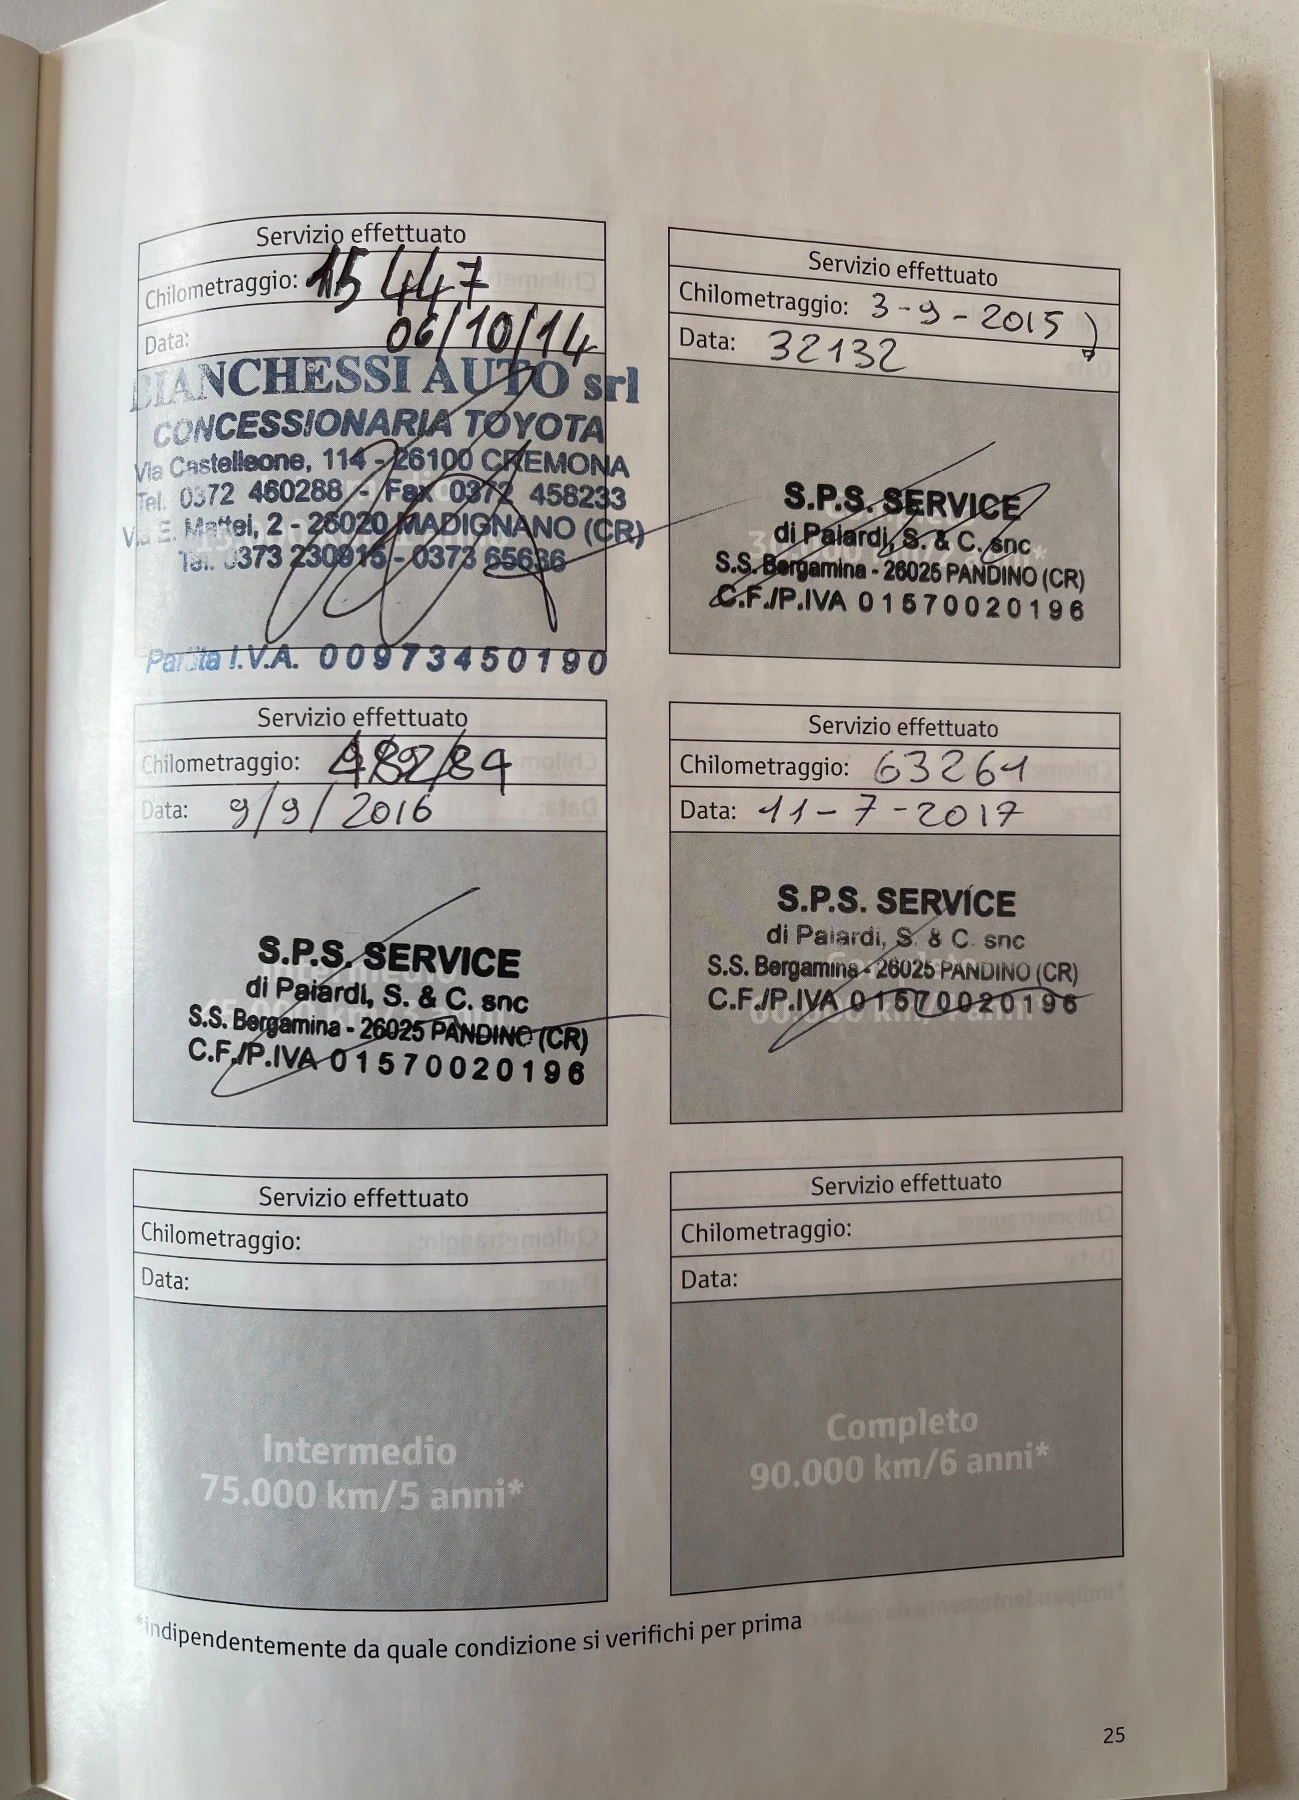 Servizio effettuato
Chilometraggio: 15447
Data: 06/10/14
BIANCHESSI AUTO srl
CONCESSIONARIA TOYOTA
Via Castelleone, 114 - 26100 CREMONA
Tel. 0372 460288 - Fax 0372 458233
Via E. Mattei, 2 - 26020 MADIGNANO (CR)
Tel. 0373 230915 - 0373 65636
Partita I.V.A. 00973450190
Servizio effettuato
Chilometraggio: 3-9-2015
Data: 32132
S.P.S. SERVICE
di Paiardi, S. & C. snc
S.S. Bergamina - 26025 PANDINO (CR)
C.F./P.IVA 01570020196
Servizio effettuato
Chilometraggio:
Data: 9/9/2016
S.P.S. SERVICE
di Paiardi, S. & C. snc
S.S. Bergamina - 26025 PANDINO (CR)
C.F./P.IVA 01570020196
Servizio effettuato
Chilometraggio: 63261
Data: 11-7-2017
S.P.S. SERVICE
di Paiardi, S. & C. snc
S.S. Bergamina - 26025 PANDINO (CR)
C.F./P.IVA 01570020196
Servizio effettuato
Chilometraggio:
Data:
Intermedio
75.000 km/5 anni*
Servizio effettuato
Chilometraggio:
Data:
Completo
90.000 km/6 anni*
*indipendentemente da quale condizione si verifichi per prima
25